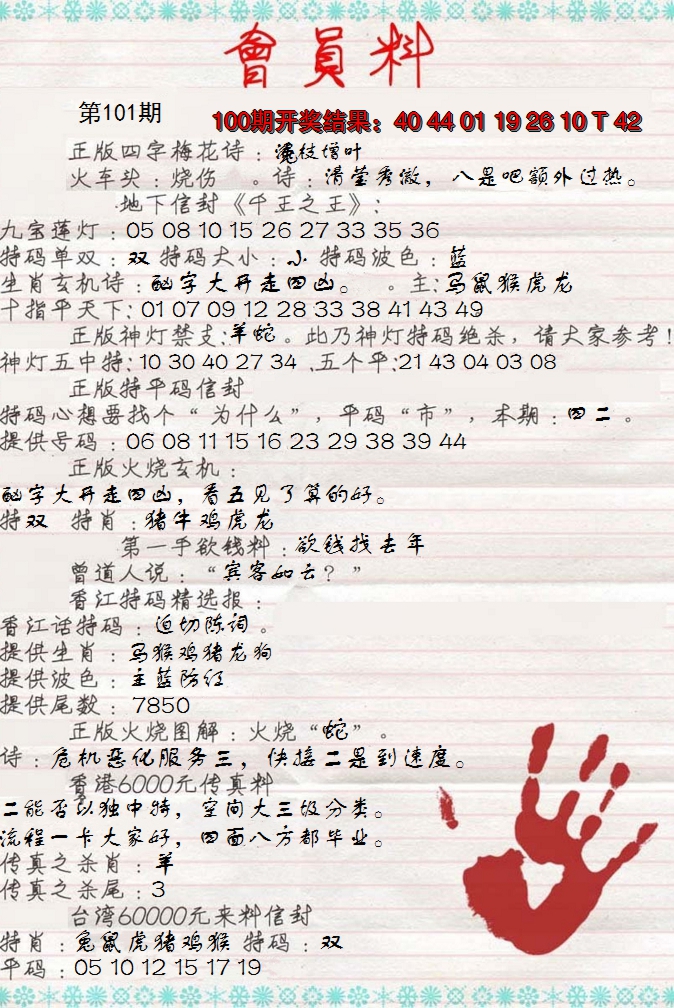 會員料
第101期
100期开奖结果：40 44 01 19 26 10 T 42
正版四字梅花诗：枝增叶
火车头：烧伤 。诗：滑莹秀澈，八是吧额外过热。
地下信封《千王之王》：
九宝莲灯：05 08 10 15 26 27 33 35 36
特码单双：双 特码大小：小 特码波色：蓝
生肖玄机诗：酗字大开走四凶。 。主：马鼠猴虎龙
十指平天下：01 07 09 12 28 33 38 41 43 49
正版神灯禁支：羊蛇。此乃神灯特码绝杀，请大家参考！
神灯五中特：10 30 40 27 34 、五个平：21 43 04 03 08
正版特平码信封
特码心想要找个“为什么”，平码“市”，本期：四二。
提供号码：06 08 11 15 16 23 29 38 39 44
正版火烧玄机：
酗字大开走四凶，看五见了算的好。
特双 特肖：猪牛鸡虎龙
第一手欲钱料：欲钱找去年
曾道人说：“宾客如云？”
香江特码精选报：
香江话特码：迫切陈词。
提供生肖：马猴鸡猪龙狗
提供波色：主蓝防红
提供尾数：7850
正版火烧图解：火烧“蛇”。
诗：危机恶化服务三，快接二是到速度。
香港6000元传真料
二能否以独中特，空间大三级分类。
流程一卡大家好，四面八方都毕业。
传真之杀肖：羊
传真之杀尾：3
台湾60000元来料信封
特肖：兔鼠虎猪鸡猴 特码：双
平码：05 10 12 15 17 19